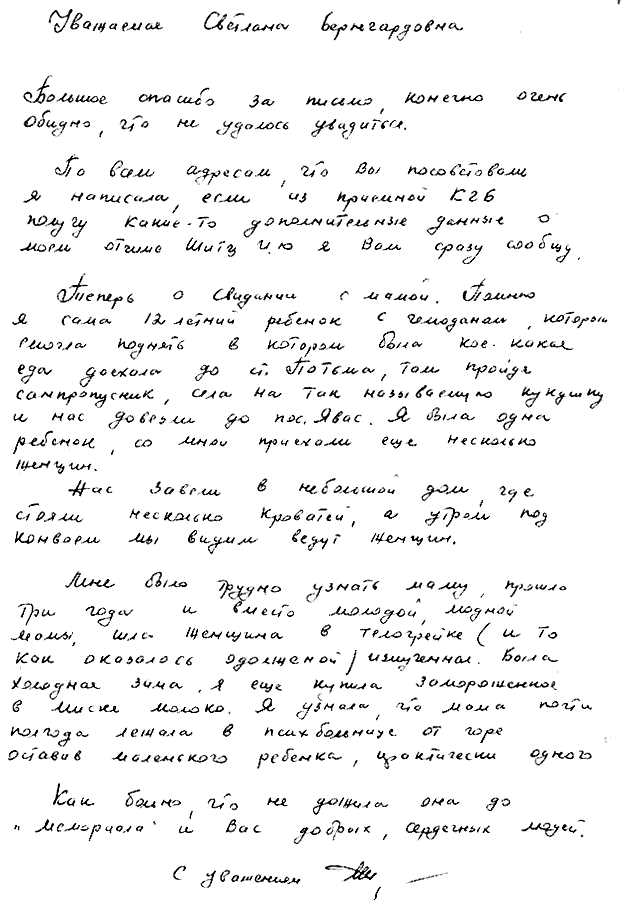 Уважаемая Светлана Бернгардовна
Большое спасибо за письмо, конечно очень
обидно, что не удалось увидиться.
По всем адресам, что Вы посоветовали
я написала, если из приемной КГБ
получу какие-то дополнительные данные о
моем отчиме Шитц И.Ю я Вам сразу сообщу.
Теперь о свидании с мамой. Помню
я сама 12 летний ребенок с чемоданом, который
смогла поднять в котором была кое-какая
еда доехала до ст. Потьма, там пройдя
санпропускник, села на так называемую кукушку
и нас довезли до пос. Явас. Я была одна
ребенок, со мной приехали еще несколько
женщин.
Нас завели в небольшой дом, где
стояли несколько кроватей, а утром под
конвоем мы видим ведут женщин.
Мне было трудно узнать маму, прошло
три года и вместо молодой, модной
мамы, шла женщина в телогрейке (и то
как оказалось одолженой) измученная. Была
холодная зима, я еще купила замороженное
в миске молоко. Я узнала, что мама почти
полгода лежала в псих больнице от горя
оставив маленького ребенка, практически одного
Как больно, что не дожила она до
"Мемориала" и Вас добрых, сердечных людей.
С уважением